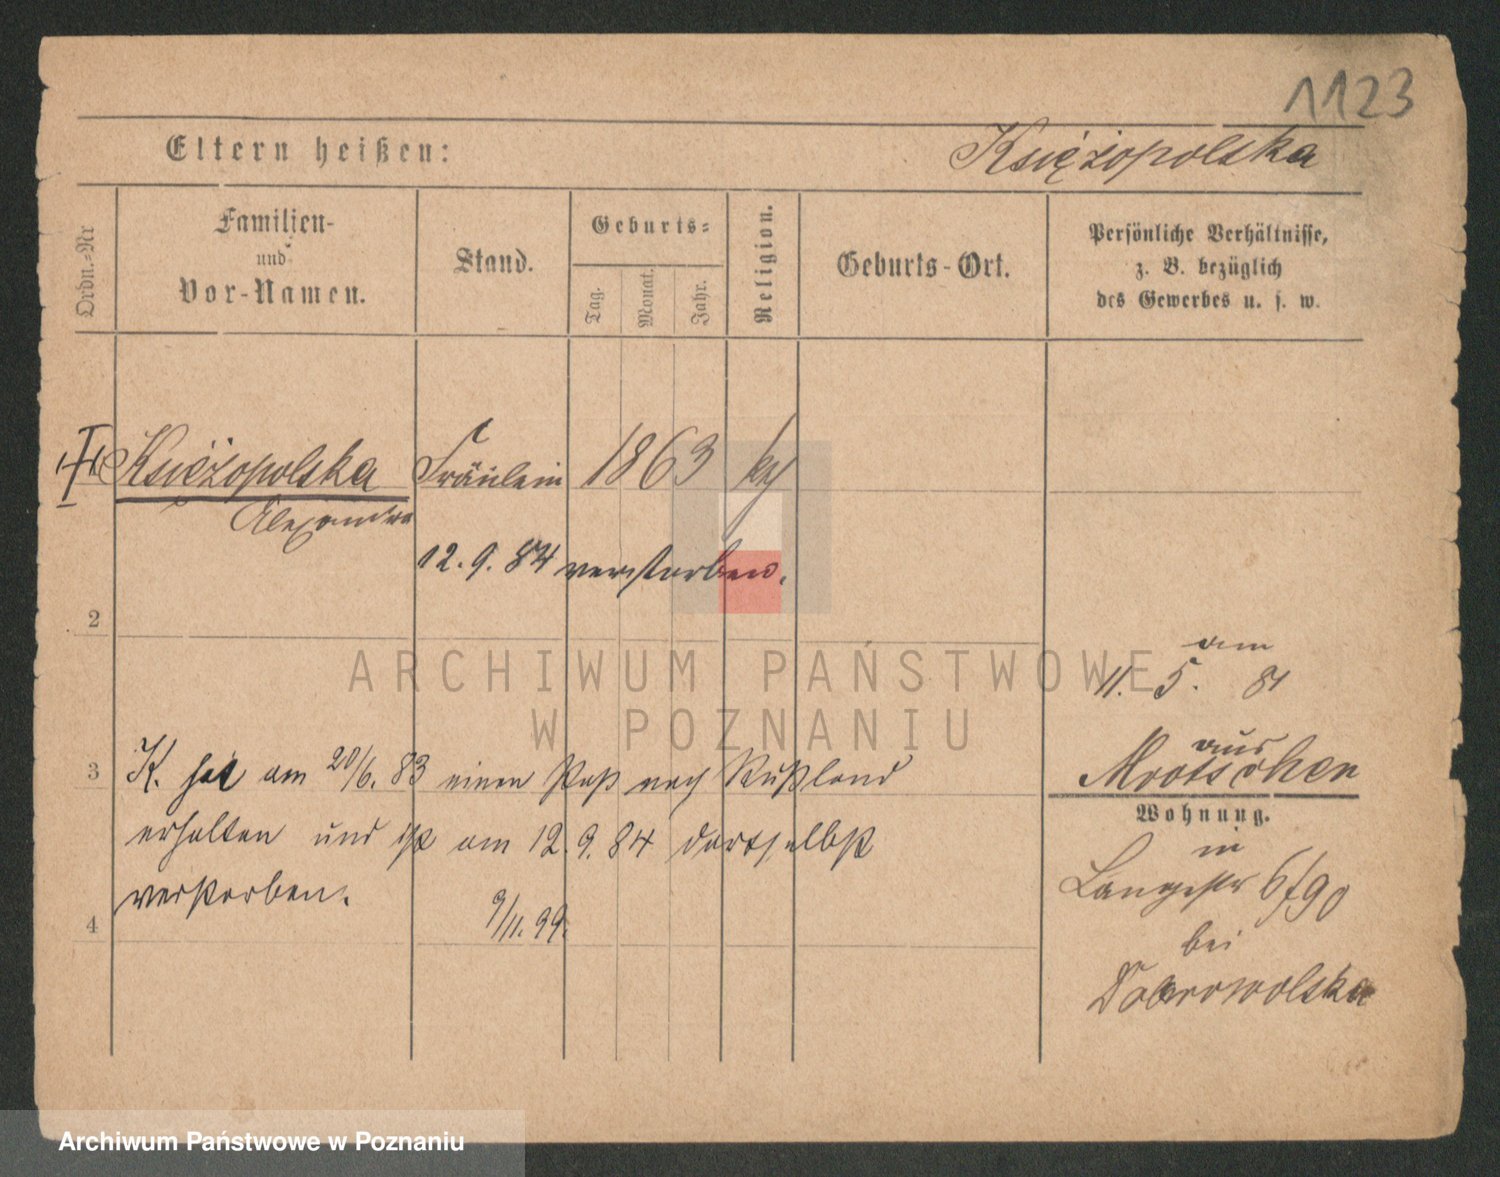 1123
Eltern heißen:
Księżopolska
Ordn.-Nr
Familien-
und
Vor-Namen.
Stand.
Geburts-
Tag.
Monat.
Jahr.
Religion.
Geburts-Ort.
Persönliche Verhältnisse,
z. B. bezüglich
des Gewerbes u. s. w.
Księżopolska
Fräulein
1863
k
Alexandra
12. 9. 84 verstorben.
2
am
11. 5. 81
aus
Mrotschen
3
K. hat am 20/6. 83 einen Paß nach Rußland
Wohnung.
erhalten und ist am 12. 9. 84 dortselbst
in
Langestr 6/90
verstorben.
9/11. 99.
4
bei
Dobrowolska
ARCHIWUM PAŃSTWOWE
W POZNANIU
Archiwum Państwowe w Poznaniu